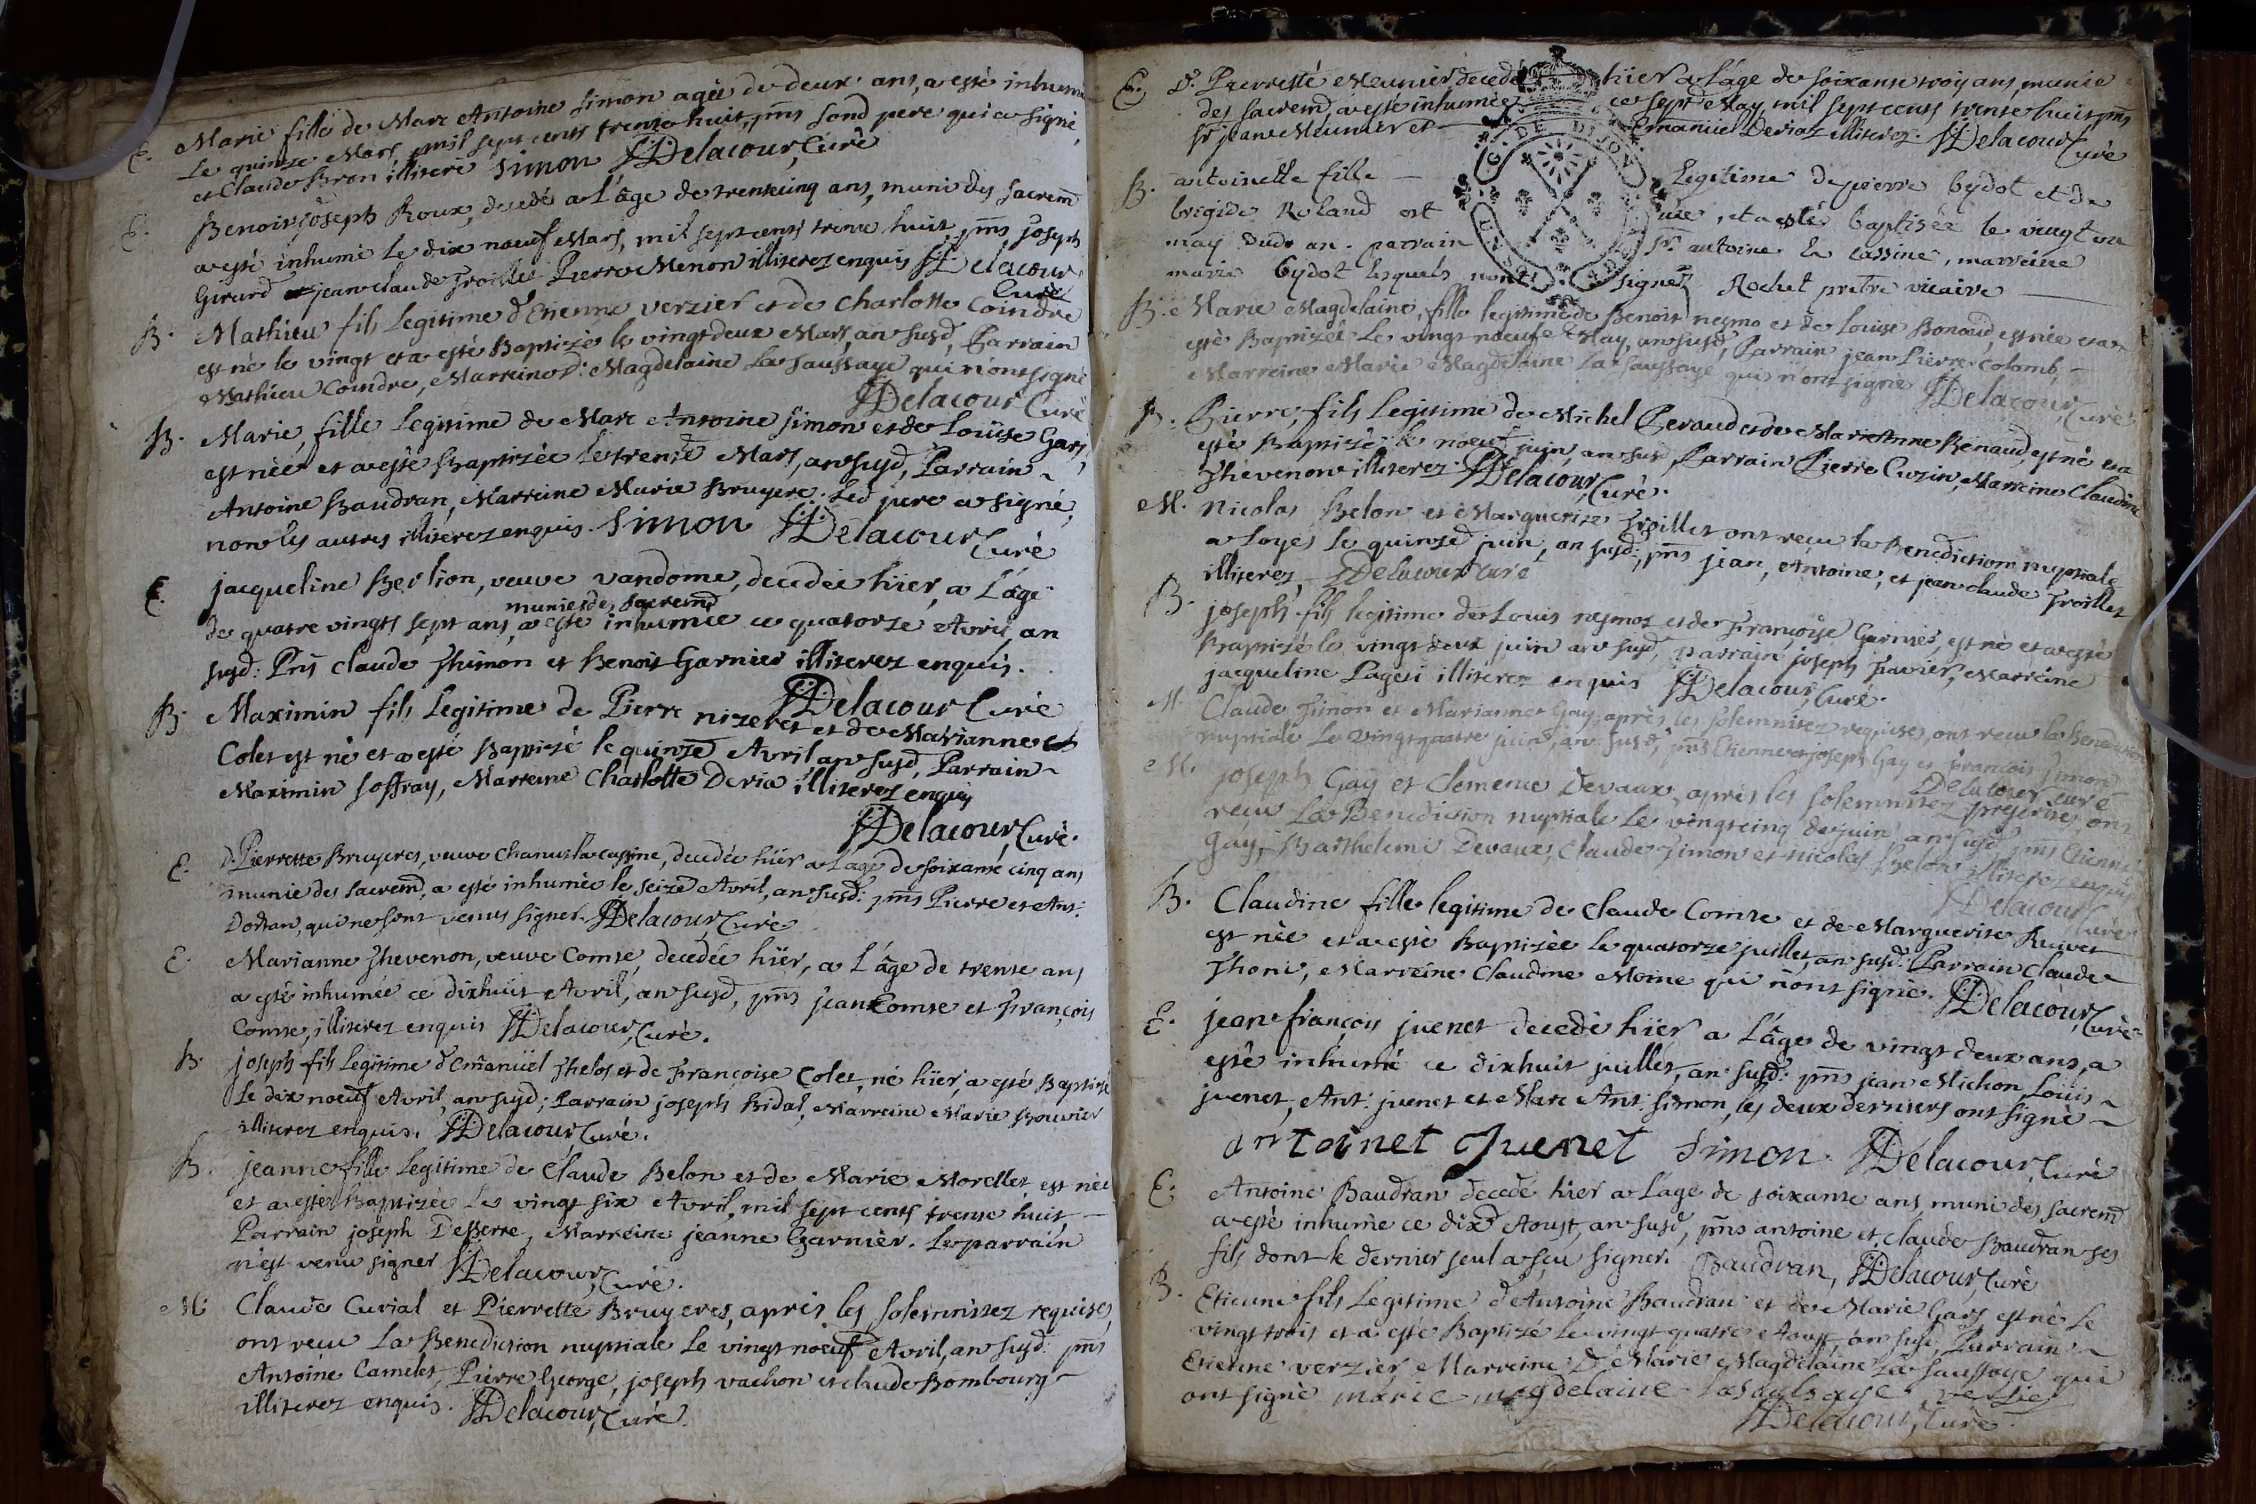 E. Marie fille de Marc Antoine Simon agée de deux ans, a esté inhumée
Le quinze Mars, mil sept cents trente huit, pns sond pere qui a signé,
et Claude Bron illiteré Simon Delacour, Curé
E. Benoit joseph Roux, decedé a L'âge de trentecinq ans, muni des sacremd
a esté inhumé le dix noeuf Mars, mil sept cents trente huit, pns joseph
Girard jean claude Froillet Pierre Menon illiterez enquis Delacour
Curé
B. Mathieu fils Legitime d'Etienne Verzier et de Charlotte Coindre
est né le vingt et a esté Baptizé le vingtdeux Mars, an susd, Parrain
Mathieu Coindre, Marreine D: Magdelaine La saussaye qui n'ont signé
Delacour Curé
B. Marie, fille Legitime de Marc Antoine Simon et de Loüise Gars,
est née et a esté Baptizée le trente Mars, an susd, Parrain
Antoine Baudran, Marreine Marie Bruyere. Led pere a signé,
non les autres illiterez enquis. Simon Delacour Curé
E. jacqueline Berlion, veuve vandome, decedée hïer, a L'âge
munie des sacremd
de quatre vingts sept ans, a esté inhumée ce quatorze Avril, an
susd: Pns claude Thimon et Benoit Garnier illiterez enquis.
Delacour Curé
B. Maximin fils Legitime de Pierre nizeret et de Marianne
Colet est né et a esté Baptizé le quinze Avril an susd, Parrain
Maximin Soffray, Marreine Charlotte Deria illiterez enquis
Delacour, Curé.
E. D. Pierrette Bruyeres, veuve Chanus la cassine, decedée hïer a L'age de soixante cinq ans
munie des sacremd, a esté inhumée le seize Avril, an susd: pns Pierre et Ant:
Dortan, qui ne sont venus signer. Delacour, Curé
E. Marianne Thevenon, veuve Comte, decedée hïer, a L'âge de trente ans
a esté inhumée ce dixhuit Avril, an susd, pns jean Comte et François
Comte, illiterez enquis Delacour, Curé.
B. joseph fils Legitime d'Emanüel Thelos et de Françoise Colet, né hïer, a esté Baptizé
Le dix noeuf Avril, an susd; Parrain joseph Bidal, Marreine Marie Bouvier
illiterez enquis. Delacour, Curé.
B. jeanne fille Legitime de Claude Belon et de Marie Morellet, est née
et a esté Baptizée Le vingt six Avril, mil sept cents trente huit
Parrain joseph Desserre, Marreine jeanne Garnier. Le parrain
n'est venu signer Delacour, Curé.
M. Claude Curial et Pierrette Bruyeres, aprés les solemnitez requises,
ont recu La Benediction nuptiale Le vingt noeuf Avril, an susd: pns
Antoine Camelet, Pierre George, joseph vachon et claude Bombourg
illiterez enquis. Delacour, Curé.
E. D. Pierrette Meunier decedée hïer a L'âge de soixante trois ans, munie
des sacremd, a esté inhumée ce sept May, mil sept cents trente huit, pns
Sr jean Meunier et Emanüel Deriaz illiterez. Delacour, Curé
G. DE DIJON
B. antoinette fille legitime de pierre bydot et de
brigide Roland est née, et a esté baptisée le vingt un
may dud. an. parrain Sr. antoine la cassine, marreine
marie bydot lesquels n'ont signez Rochet pretre vicaire
B. Marie Magdelaine, fille legitime de Benoit neymo et de Louise Bonaud, est née et a
esté Baptizée Le vingt noeuf May, an susd, Parrain jean Pierre Colomb,
Marreine Marie Magdelaine La saussaye qui n'ont signé Delacour, Curé
B. Pierre, fils Legitime de Michel Peraud et de Marie Anne Benaud, est né et a
esté Baptizé le noeuf juin, an susd, Parrain Pierre Cuzin, Marreine Claudine
Thevenon illiterez. Delacour, Curé.
M. Nicolas Belon et Marguerite Froillet ont recu la Benediction nuptiale
a Loyes le quinze juin, an susd: pns jean, Antoine, et jean claude Froillet
illiterez Delacour curé
B. joseph fils legitime de Louis neymoz et de Françoise Garnier, est né et a esté
Baptizé le vingt deux juin an susd, Parrain joseph Favier, Marreine
jacqueline Pageti illiterez enquis Delacour, Curé.
M. Claude Simon et Marianne Gay, après les solemnitez requises, ont recu la Benediction
nuptiale Le vingtquatre juin, an susd, pns Etienne et joseph Gay et François Simon
Delacour, curé
M. joseph Gay et Clemence Devaux, aprés les solemnitez requises, ont
recu La Benediction nuptiale Le vingtcinq de juin an susd, pns Etienne
Gay, Barthelemi Devaux, Claude Simon et Nicolas Belon illiterez enquis
Delacour, Curé
B. Claudine fille legitime de Claude Comte et de Marguerite Ruivet
est née et a esté Baptizée le quatorze juillet, an susd: Parrain Claude
Thoni, Marreine Claudine Moine qui n'ont signé. Delacour, Curé
E. jean françois juenet decedé hïer a L'âge de vingt deux ans, a
esté inhumé ce dixhuit juillet, an susd: pns jean Michon, Louis
juenet, Ant: juenet et Marc Ant: Simon, les deux derniers ont signé
antoinet Juenet Simon. Delacour, Curé
E. Antoine Baudran decedé hïer a L'age de soixante ans muni des sacremd
a esté inhumé ce dixd Aoust, an susd, pns antoine et claude Baudran ses
fils dont le dernier seul a sçu signer. Baudran, Delacour, Curé
B. Etienne fils Legitime d'Antoine Baudran et de Marie Gars, est né Le
vingt trois et a esté Baptizé Le vingt quatre Aoust, an susd, Parrain
Etienne verzier, Marreine De Marie Magdelaine La saussaye qui
ont signé marie magdelaine lasaulsaye. verzier
Delacour, Curé.